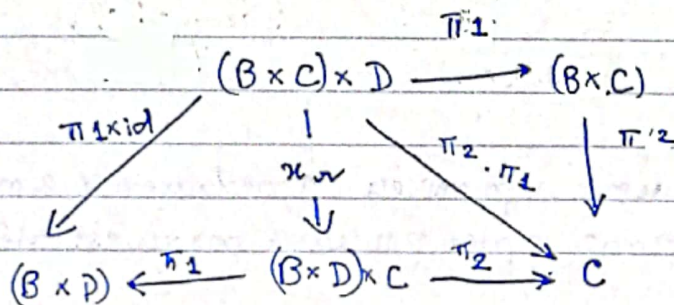 π1
(B × C) × D → (B × C)
π1×id
π2
π2 · π1
xr
(B × D) ← π1 (B × D) × C π2 → C